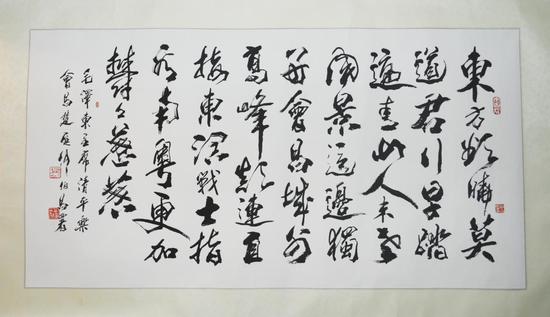 東方欲曉莫
道君行早踏
遍青山人未老
風景這邊獨
好會昌城外
高峰顛連直
接東溟戰士指
看南粵更加
鬱々葱葱
毛澤東主席清平樂
會昌